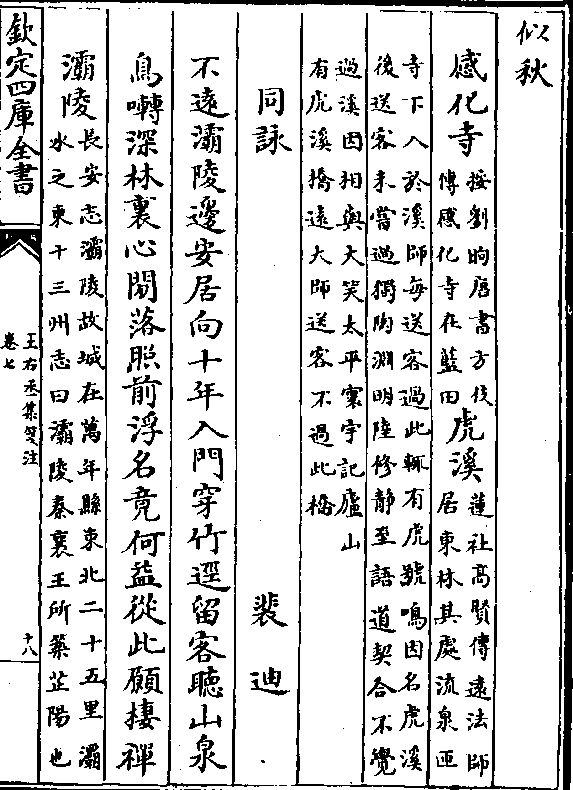 似秋
感化寺按劉昫唐書方伎
傳感化寺在藍田虎溪蓮社高賢傳遠法師
居東林其處流泉匝
寺下入於溪師每送客過此輒有虎號鳴因名虎溪
後送客未嘗過獨陶淵明陸修静至語道契合不覺
過溪因相與大笑太平寰宇記廬山
有虎溪橋遠大師送客不過此橋
同詠 裴迪
不遠灞陵邊安居向十年入門穿竹逕留客聽山泉
鳥囀深林裏心閒落照前浮名竟何益從此願棲禪
灞陵長安志灞陵故城在萬年縣東北二十五里灞
水之東十三州志曰灞陵秦襄王所築芷陽也
欽定四庫全書
王右丞集箋注
卷七
十八